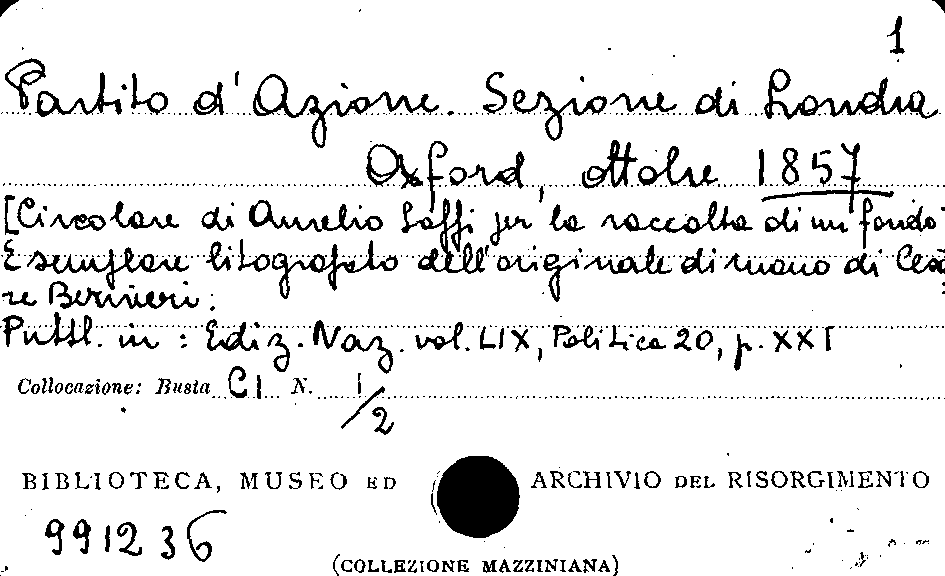 1
Partito d'Azione. Sezione di Londra
Oxford, ottobre 1857
[Circolare di Aurelio Saffi per la raccolta di un fondo
Esemplare litografato dell'originale di mano di Cesa
re Bernieri.
Pubbl. in : Ediz. Naz. vol. LIX, Politica 20, p. XXI
Collocazione: Busta CI N. 1/2
BIBLIOTECA, MUSEO ED ARCHIVIO DEL RISORGIMENTO
991236
(COLLEZIONE MAZZINIANA)